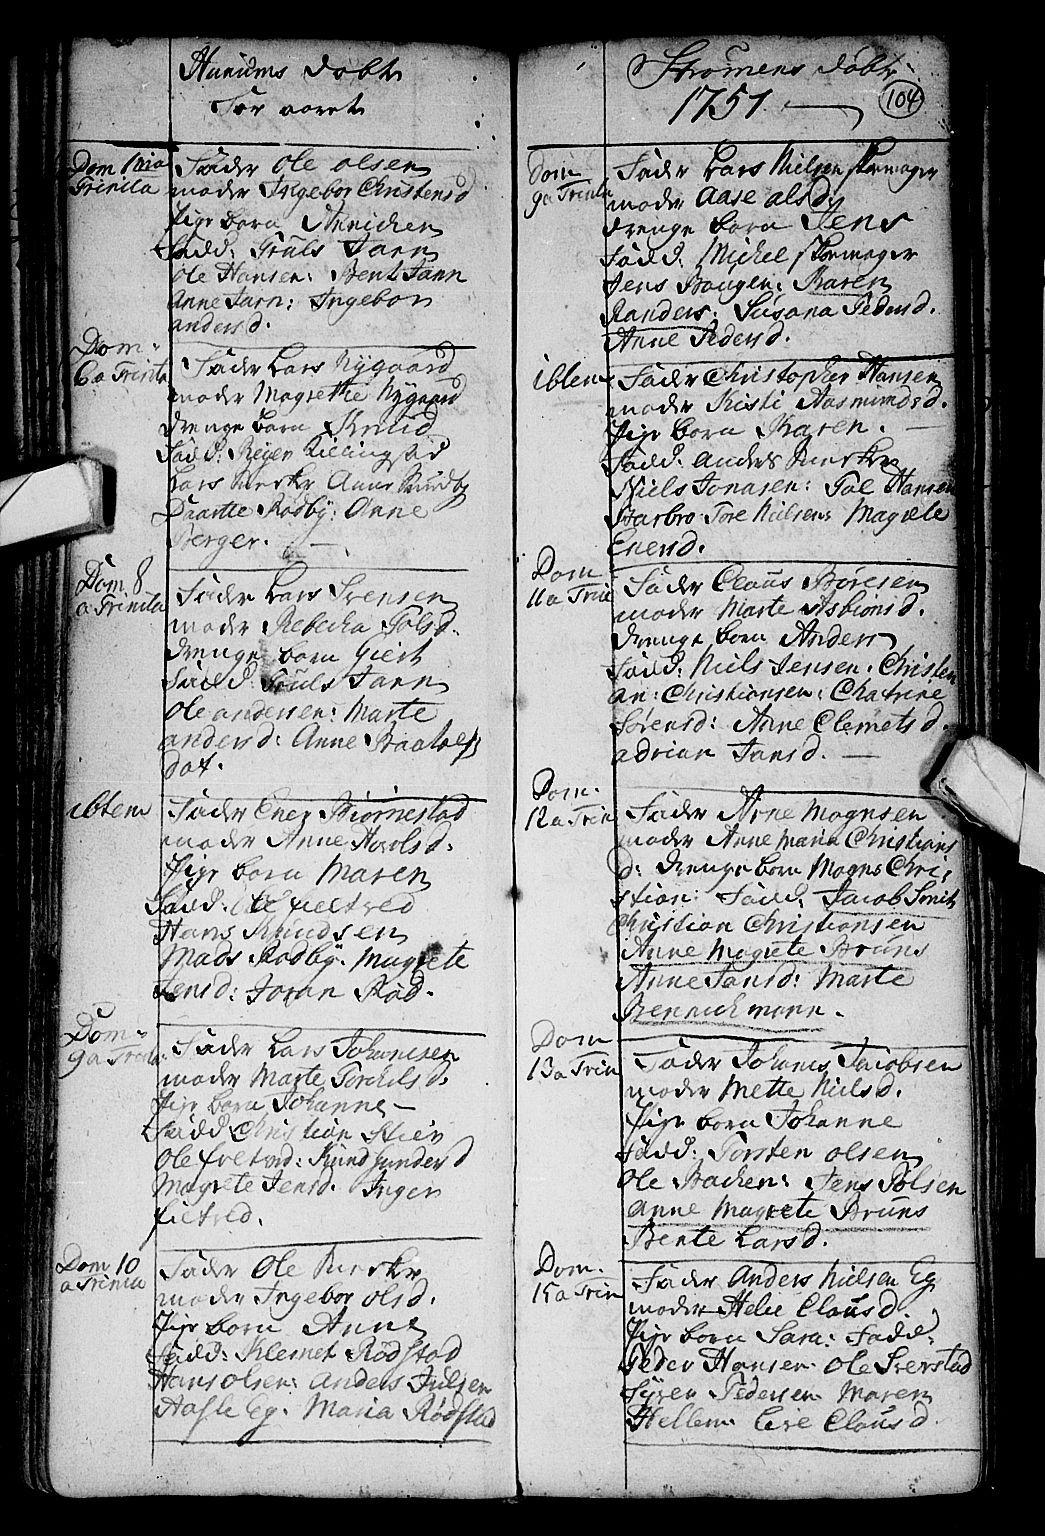 Hurums Døbte
For aaret
Dom 1 ma
Trinita
Fader Ole Olsen
moder Ingebor Christensd
Pige barn Annichen
Fadd: Truls Tarn
Ole Hansen: Bent Tarn
Anne Tarn: Ingebor
andersd.
Dom
6 a Trinita
Fader Lars Nygaard
moder Magrethe Nygaard
Drenge barn Knud
Fadd: Reier Killingstad
Lars Morke Anne Rudby
Daarte Rødby: Anne
Berger.
Dom 8
a Trinita
Fader Lars Svensen
moder Rebecka Polsd.
Drenge barn Giert
Fadd: Truls Tarn
Ole andersen: Marte
andersd: Anne
dat.
ibtem
Fader Ener Biørnestad
moder Anne Harolsd.
Pige barn Maren
Fadd: Ole Filtved
Hans Knudsen
Mads Rødby. Magrete
Jensd: Joran Rød.
Dom
9 a Trinita
Fader Lars Johannesen
moder Marte Torchilsd.
Pige barn Johanne
Fadd Christian Stier
Ole Filtved: Knud Gundersd
Magrete Jensd. Inger
Filtved.
Dom 10
a Trinita
Fader Ole Morke
moder Ingebor Olsd.
Pige barn Anne
Fadd: Klemet Rødstad
Hans Olsen: Anders Julsen
Aasle Eg. Maria Rødstad
Strømens Døbte
1751
104
Dom
9 a Trinita
Fader Lars Nilsen skomager
moder Aase alsd
drenge barn Jens
Fadd: Michel skomager
Jens Haugen: Karen
Randers: Susana Pedersd.
Anne Pedersd.
ibtem
Fader Christopher Hansen
moder Kisti Aasmundsd.
Pige barn Karen.
Fadd. Anders Morke
Niels Jonasen: Tal Hansen
Harbro Tore Nielsen: Magrete
Enersd.
Dom
11 a Trin
Fader Claus Børesen
moder Marte Asbiønsd.
Drenge barn Anders
Fadd: Niels Jensen. Christen
an: Christiansen: Chatrine
Sørensd: Anne Clemetsd.
adrian Jansd.
Dom.
12 a Trin
Fader Arne Mognsen
moder Anne Maria Christians
d: Drenge barn Mogns Chri-
stian: Fadd. Jacob Smit
Christian Christiansen
Anne Magrete Bruns
Anne Jansd: Marte
Bennichmann.
Dom
13 a Trin
Fader Johanes Jacobsen
moder Mette Nielsd.
Pige barn Johanne
Fadd: Torsten Olsen
Ole Backen: Jens Polsen
Anne Magrete Bruns
Bente Larsd.
Dom.
15 a Trin
Fader Anders Nielsen Eg
moder Helie Clausd.
Pige barn Sara: Fadd:
Peder Hansen. Ole Sverstad
Syver Pedersen. Maren
Hellem. Live Clausd